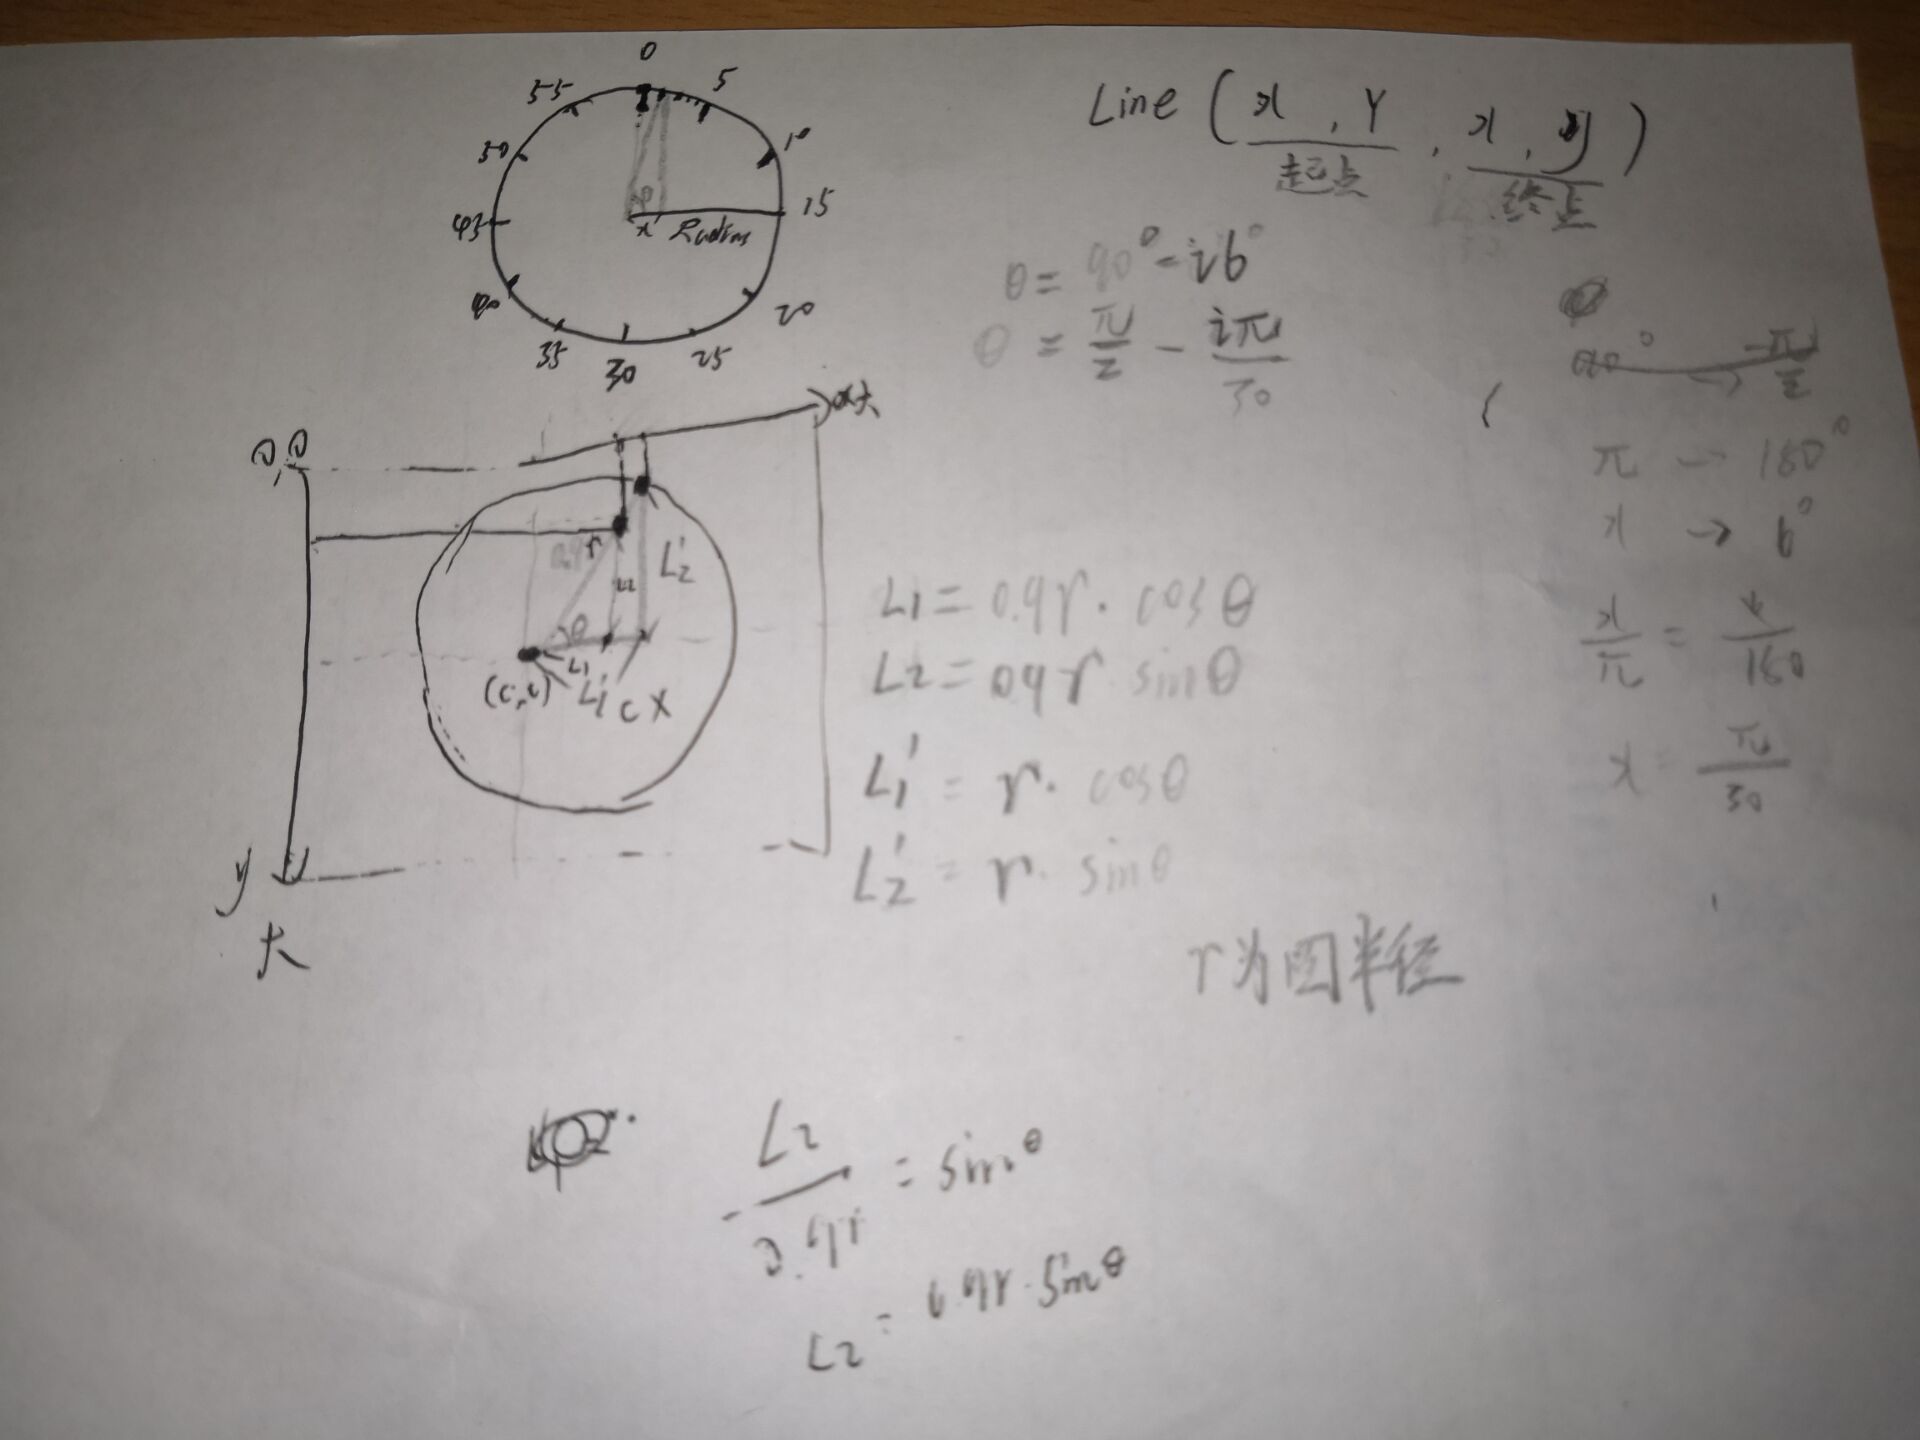 0
5
10
15
20
25
30
35
40
45
50
55
x Radius
Line ( x , Y , x , y )
起点 终点
θ = 90° - i6°
θ = π/2 - iπ/30
π → 180°
x → 6°
x/π = 6/180
x = π/30
0,0
x大
0.9r
L2
L2'
θ
L1
(c,c) L1' c X
y
大
L1 = 0.9r · cosθ
L2 = 0.9r sinθ
L1' = r · cosθ
L2' = r · sinθ
r为圆半径
L2/0.9r = sinθ
L2 = 0.9r · sinθ